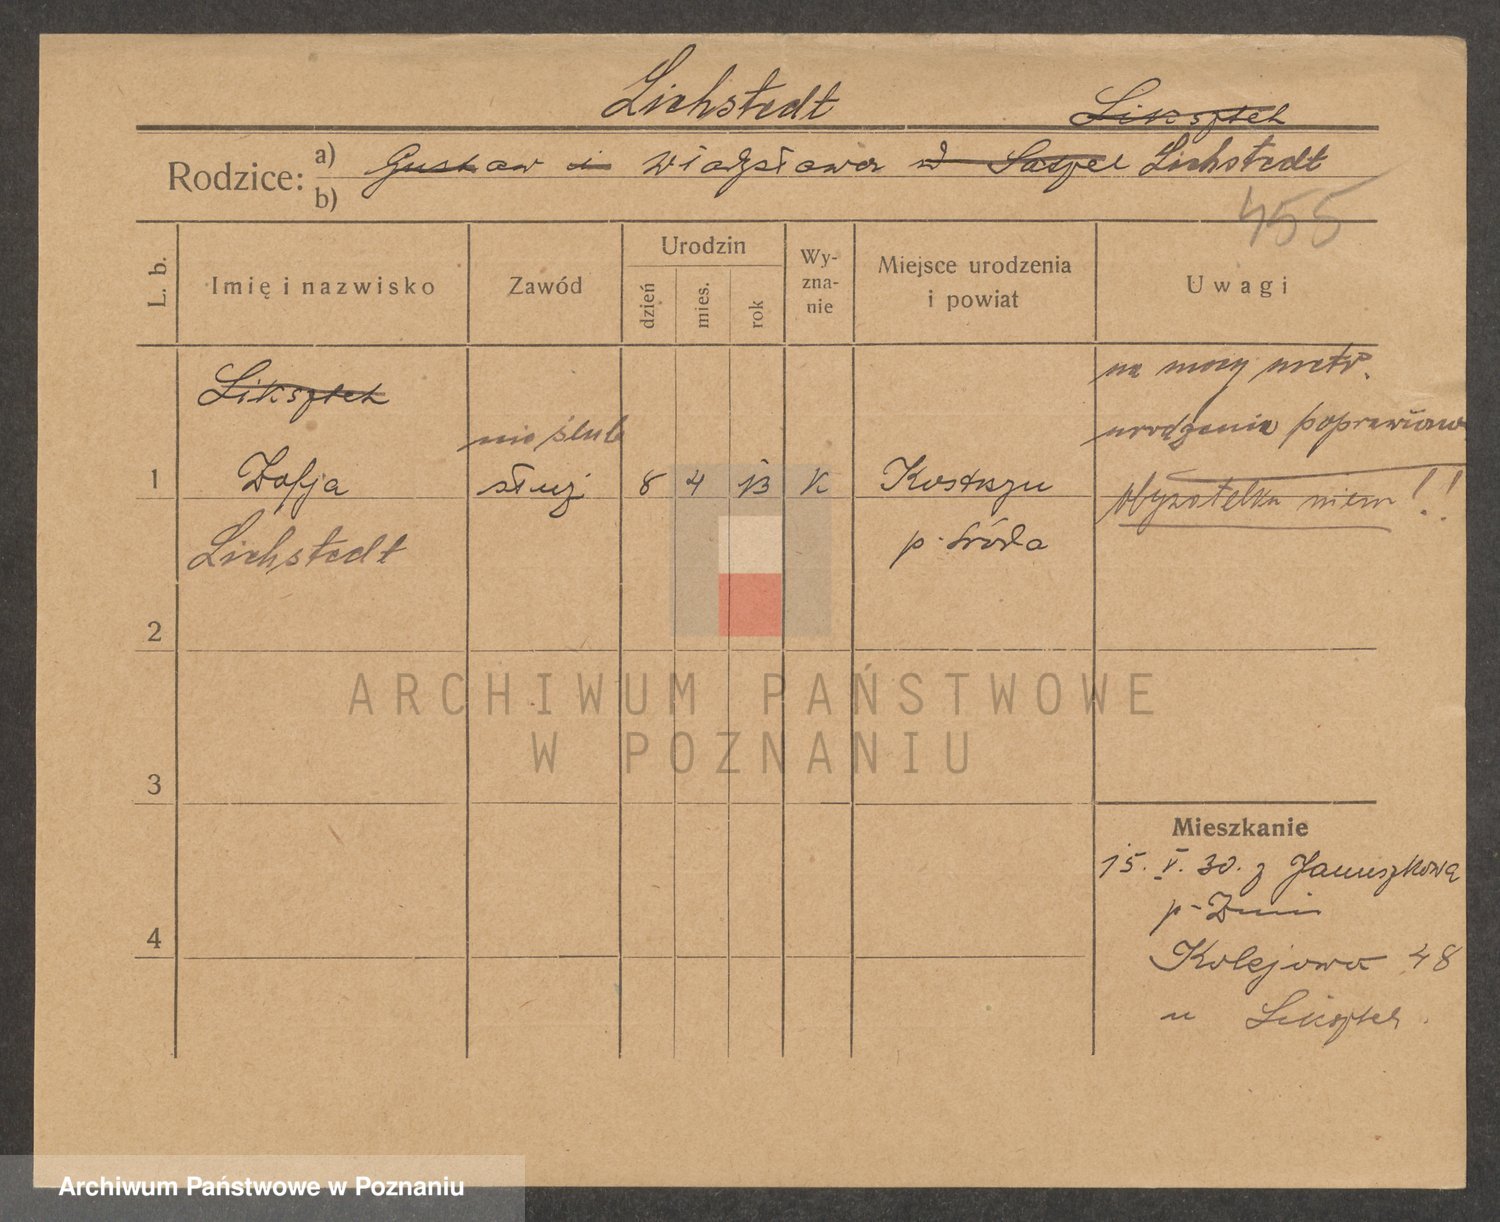 Lichstedt Liksztet
Rodzice: a) Gustaw i Władysława Lichstedt
b)
455
L. b.
Imię i nazwisko
Zawód
Urodzin
dzień
mies.
rok
Wy-
zna-
nie
Miejsce urodzenia
i powiat
Uwagi
Liksztet
na mocy metr.
nieślub
urodzenia poprawiono
1 Zofja służ 8 4 13 K Kostrzyn
Obywatelka niem!!
Lichstedt
p. Środa
2
ARCHIWUM PAŃSTWOWE
W POZNANIU
3
Mieszkanie
15. V. 30. z Januszkowa
p-Żnin
4
Kolejowa 48
u Liksztet.
Archiwum Państwowe w Poznaniu